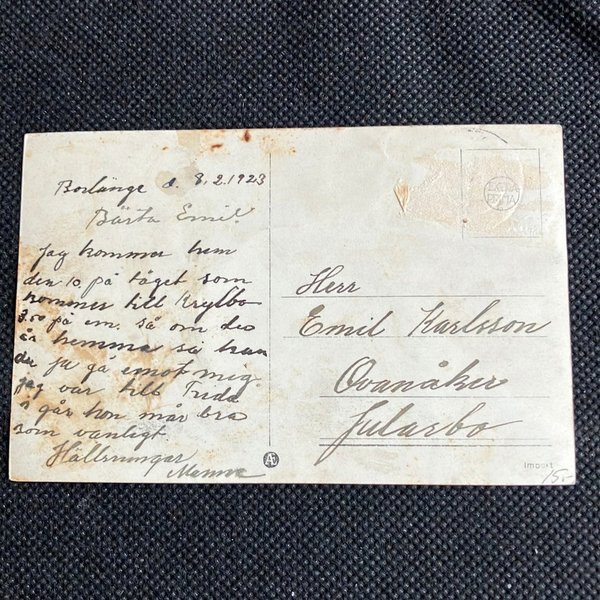 Borlänge d. 8.2.1923
Bästa Emil!
Jag kommer hem
den 10. på tåget som
kommer till Krylbo
3.00 på em. så om du
är hemma så kan
du ja gå emot mig
jag var till Frida
i går hon mår bra
som vanligt.
Hälsningar
Herr
Emil Karlsson
Ovanåker
Jularbo
Import
15:-